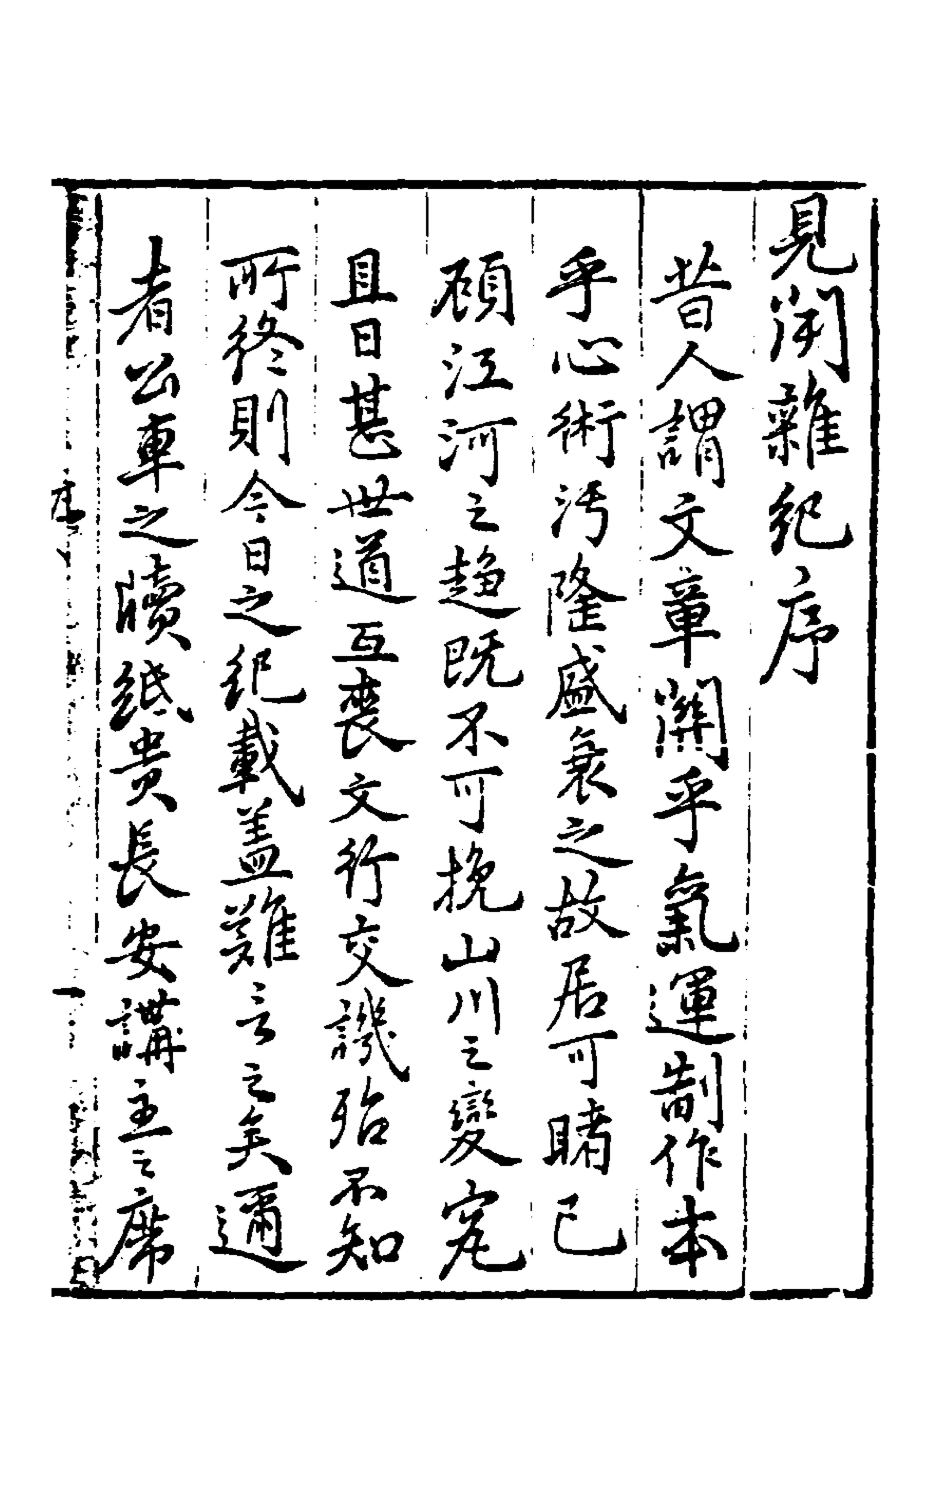 見聞雜紀序
昔人謂文章關乎氣運制作本
乎心術汚隆盛衰之故居可睹已
顧江河之趨既不可挽山川之變寔
且日甚世道互喪文行交譏殆不知
所終則今日之紀載盖難言之矣邇
者公車之牘紙貴長安講主之席
序
一